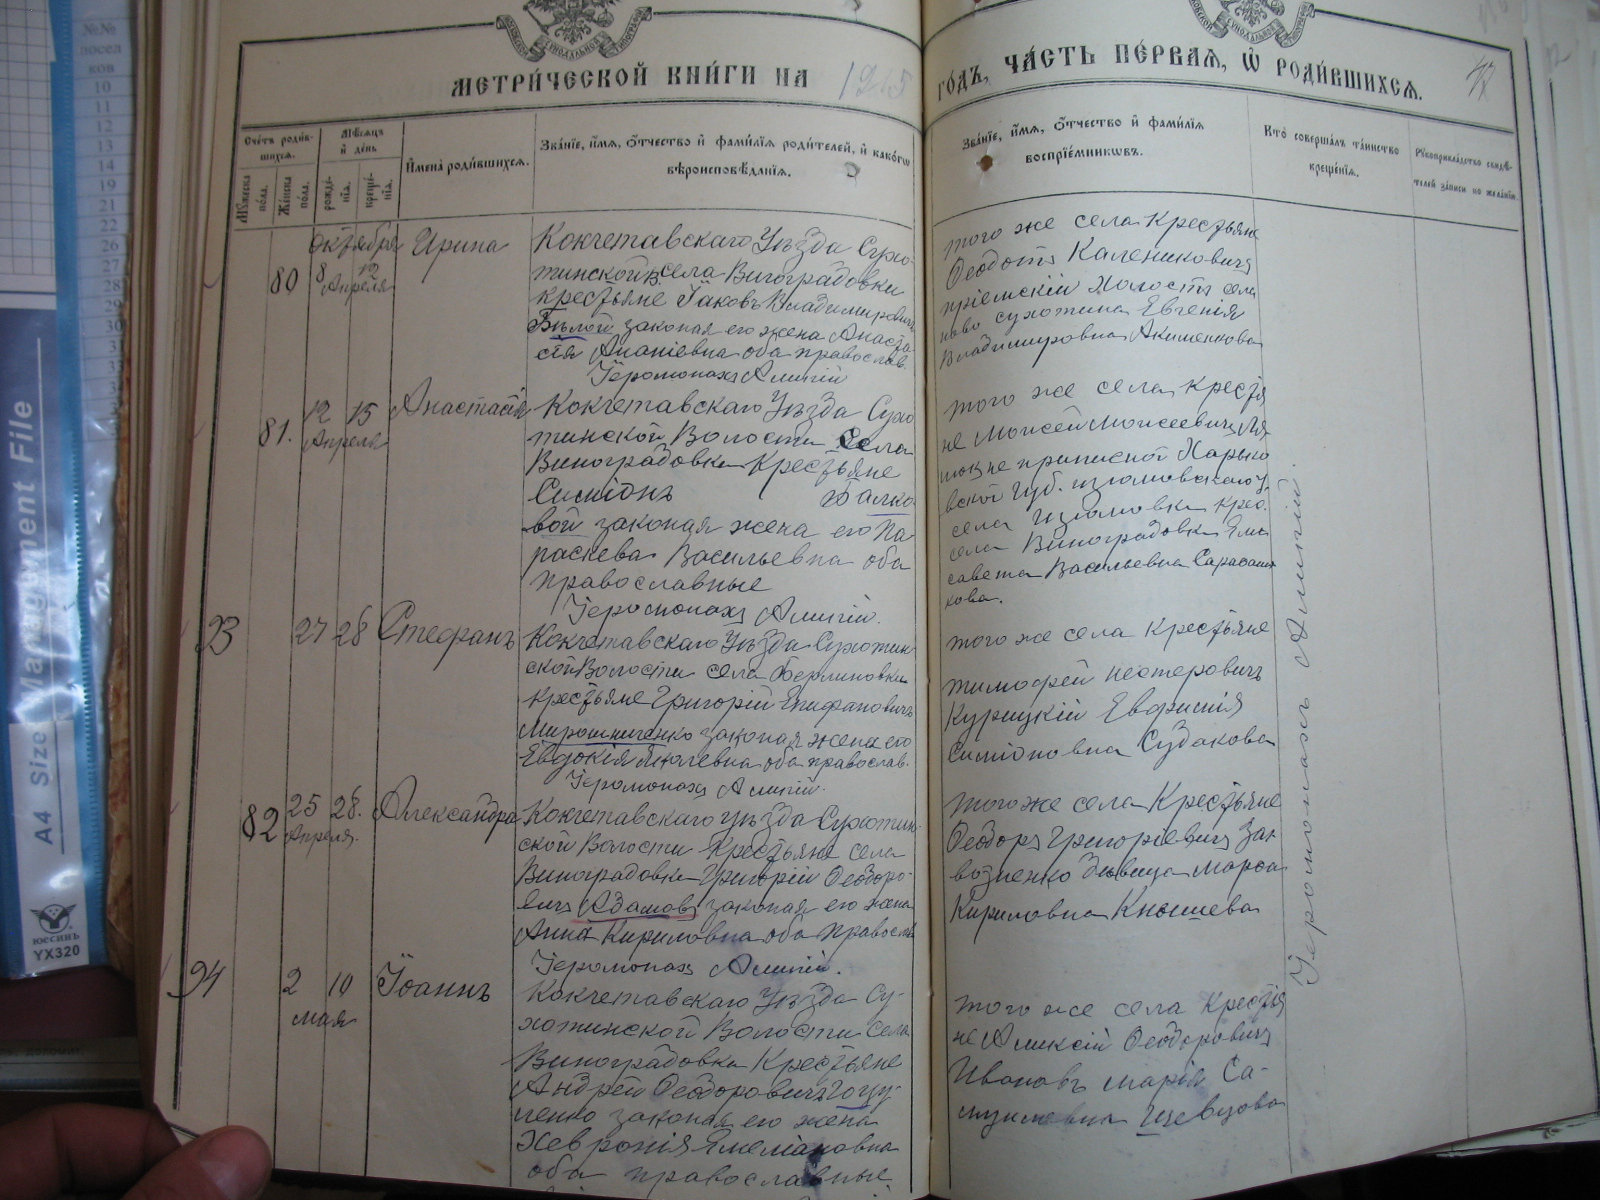 МЕТРИ́ЧЕСКОЙ КНИ́ГИ НА 1915
ГО́ДЪ, ЧА́СТЬ ПЕ́РВАЯ, Ѽ РОДИ́ВШИХСЯ.
Сче́тъ роди́в-
шихся.
Мѣ́сяцъ
и де́нь
Му́жеска по́ла.
Же́нска по́ла.
рожде́-
нїя.
креще́-
нїя.
И҆мена̀ роди́вшихся.
Зва́нїе, и҆́мя, ѻ҆́тчество и҆ фами́лїя роди́телей, и҆ како́гѡ
вѣроисповѣ́данїя.
Зва́нїе, и҆́мя, ѻ҆́тчество и҆ фами́лїя
воспрїе́мникѡвъ.
Кто̀ соверша́лъ та́инство
креще́нїя.
Рꙋкоприкла́дство свидѣ́-
телей за́писи по жела́нїю
80
октября
8 12
Апреля
Ирина
Кокчетавскаго Уѣзда Сухо-
тинской в. села Виноградовки
крестьяне Іаковъ Владимировичъ
Бѣлой законая его жена Анаста
сія Ананіевна оба православ.
Іеромонахъ Алипій
того же села Крестьяне
Ѳеодотъ Калениковичъ
села
ново сухотина Евгенія
Владимировна Акименкова
81.
12 15
Апреля
Анастасія
Кокчетавскаго Уѣзда Сухо
тинской Волости Села
Виноградовки Крестьяне
Симіонъ Балко
вой законая жена его Па
раскева Васильевна оба
православные
Іеромонахъ Алипій.
того же села Крестья
не Моисей Моисеевичъ
не приписной Харько
вской Губ. изюмовскаго у.
села Изюмовки Крес.
села Виноградовки Ели
савета Васильевна
кова.
93
27 28
Стефанъ
Кокчетавскаго Уѣзда Сухотин
ской Волости села Берлиновки
крестьяне Григорій Епифановичъ
Мирошниченко законая жена его
Евдокія оба православ.
Іеромонахъ Алипій.
того же села Крестьяне
тимофей нестеровичъ
Курицкій Евфимія
Симіоновна Судакова
82
25 28.
Апреля.
Александра
Кокчетавскаго Уѣзда Сухотин-
ской Волости Крестьяне села
Виноградовки Григорій Ѳеодоро-
вичъ Адамовъ законая его жена
Анна Кириловна оба православ
Іеромонахъ Алипій.
того же села Крестьяне
Ѳеодоръ Григоріевичъ Зав
возненко Дѣвица марфа
Кириловна Кнышева
94
2 10
мая
Іоаннъ
Кокчетавскаго Уѣзда Су-
хотинской Волости Села
Виноградовки Крестьяне
Андрей Ѳеодоровичъ Гоцу-
ленко законая его жена
Хевронія Емеліановна
оба православные
того же села Крестья
не Аликсій Ѳеодоровичъ
Ивановъ марія Са-
муиловна Шевцова
Іеромонахъ Алипій
Management File
A4 Size
юєсинъ
YX320
№№
посел
ков
10
11
12
13
14
19
21
22
26
27
28
29
30
31